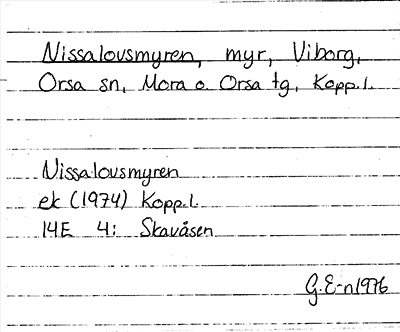 Nissalovsmyren, myr, Viborg,
Orsa sn, Mora o. Orsa tg, Kopp.l.
Nissalovsmyren
ek (1974) Kopp.l.
14E 4: Skavåsen
G.E-n 1976